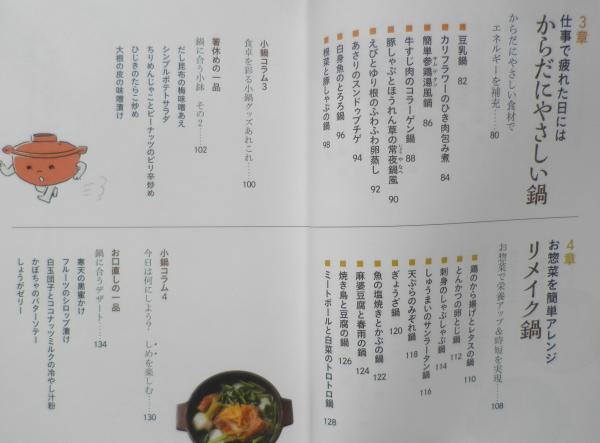 3章
仕事で疲れた日には
からだにやさしい鍋
からだにやさしい食材で
エネルギーを補充……80
豆乳鍋 82
カリフラワーのひき肉包み煮 84
簡単参鶏湯風鍋 86
サムゲタン
牛すじ肉のコラーゲン鍋 88
豚しゃぶとほうれん草の常夜鍋風 90
じょうやなべ
えびとゆり根のふわふわ卵蒸し 92
あさりのスンドゥブチゲ 94
白身魚のとろろ鍋 96
根菜と豚しゃぶの鍋 98
小鍋コラム3
食卓を彩る小鍋グッズあれこれ……100
箸休めの一品
鍋に合う小鉢 その2……102
だし昆布の梅味噌あえ
シンプルポテトサラダ
ちりめんじゃことピーナッツのピリ辛炒め
ひじきのたらこ炒め
大根の皮の味噌漬け
4章
お惣菜を簡単アレンジ
リメイク鍋
お惣菜で栄養アップ&時短を実現……108
鶏のから揚げとレタスの鍋 110
とんかつの卵とじ鍋 112
刺身のしゃぶしゃぶ鍋 114
しゅうまいのサンラータン鍋 116
天ぷらのみぞれ鍋 118
ぎょうざ鍋 120
魚の塩焼きとかぶの鍋 122
麻婆豆腐と春雨の鍋 124
焼き鳥と豆腐の鍋 126
ミートボールと白菜のトロトロ鍋 128
小鍋コラム4
今日は何にしよう? しめを楽しむ……130
お口直しの一品
鍋に合うデザート……134
寒天の黒蜜かけ
フルーツのシロップ漬け
白玉団子とココナッツミルクの冷やし汁粉
かぼちゃのバターソテー
しょうがゼリー